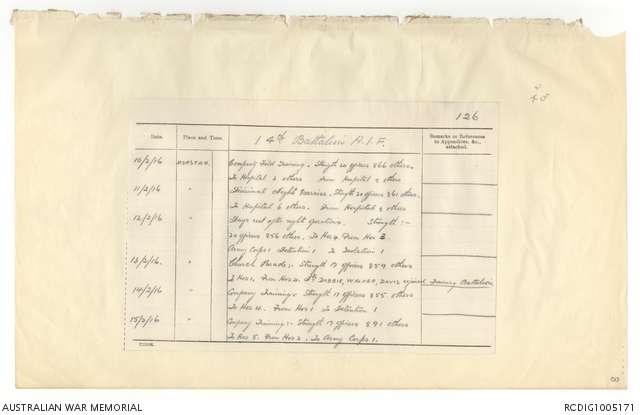 126
Date. Place and Time. 14th Battalion A.I.F. Remarks or References to Appendices, &c., attached.
10/2/16 Company Field Training. Strength 20 officers 866 others.
To Hospital 2 others From Hospital 2 others
11/2/16 " Divisional Night Exercise. Strength 20 officers 861 others.
To Hospital 6 others. From Hospital 2 others
12/2/16 " Days rest after night operations. Strength :-
20 officers 856 others. To Hos 4 From Hos 3
Army Corps 1 Detention 1 To Isolation 1
13/2/16. " Church Parade:- Strength 17 officers 859 others
To Hos 1. From Hos 2. DAVIS rejoined Training Battalion
14/2/16 " Company Training:- Strength 17 officers 855 others
To Hos 4. From Hos 1 To Detention 1
15/2/16 " Company Training:- Strength 17 officers 891 others
To Hos 5. From Hos 2. To Army Corps 1.
8
AUSTRALIAN WAR MEMORIAL
RCDIG1005171